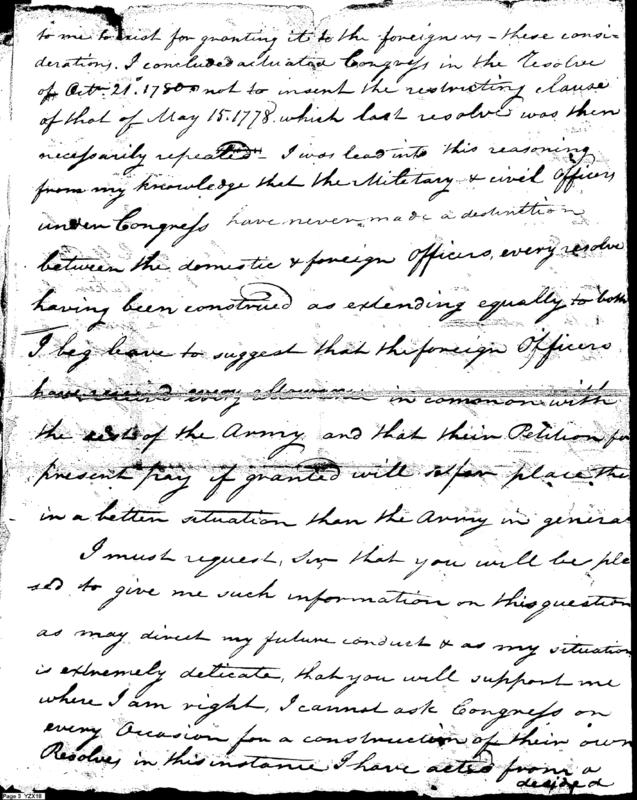 to me to exist for granting it to the foreigners - these consi-
derations, I concluded actuated Congress in the Resolve
of Octr. 21. 1780 not to insert the restricting clause
of that of May 15. 1778. which last resolve was then
necessarily repealed - I was lead into this reasoning
from my knowledge that the Military & civil Officers
under Congress have never made a destinction
between the domestic & foreign Officers, every resolve
having been construed as extending equally to both
I beg leave to suggest that the foreign Officers
have receivd every allowance in common with
the rest of the Army and that their Petition for
present pay if granted will so far place them
in a better situation than the Army in genera
I must request, Sir that you will be plea
sed to give me such information on this question
as may direct my future conduct & as my situation
is extremely delicate, that you will support me
where I am right, I cannot ask Congress on
every Occasion for a construction of their own
Resolves in this instance I have acted from a
decided
Page 3 YZX18